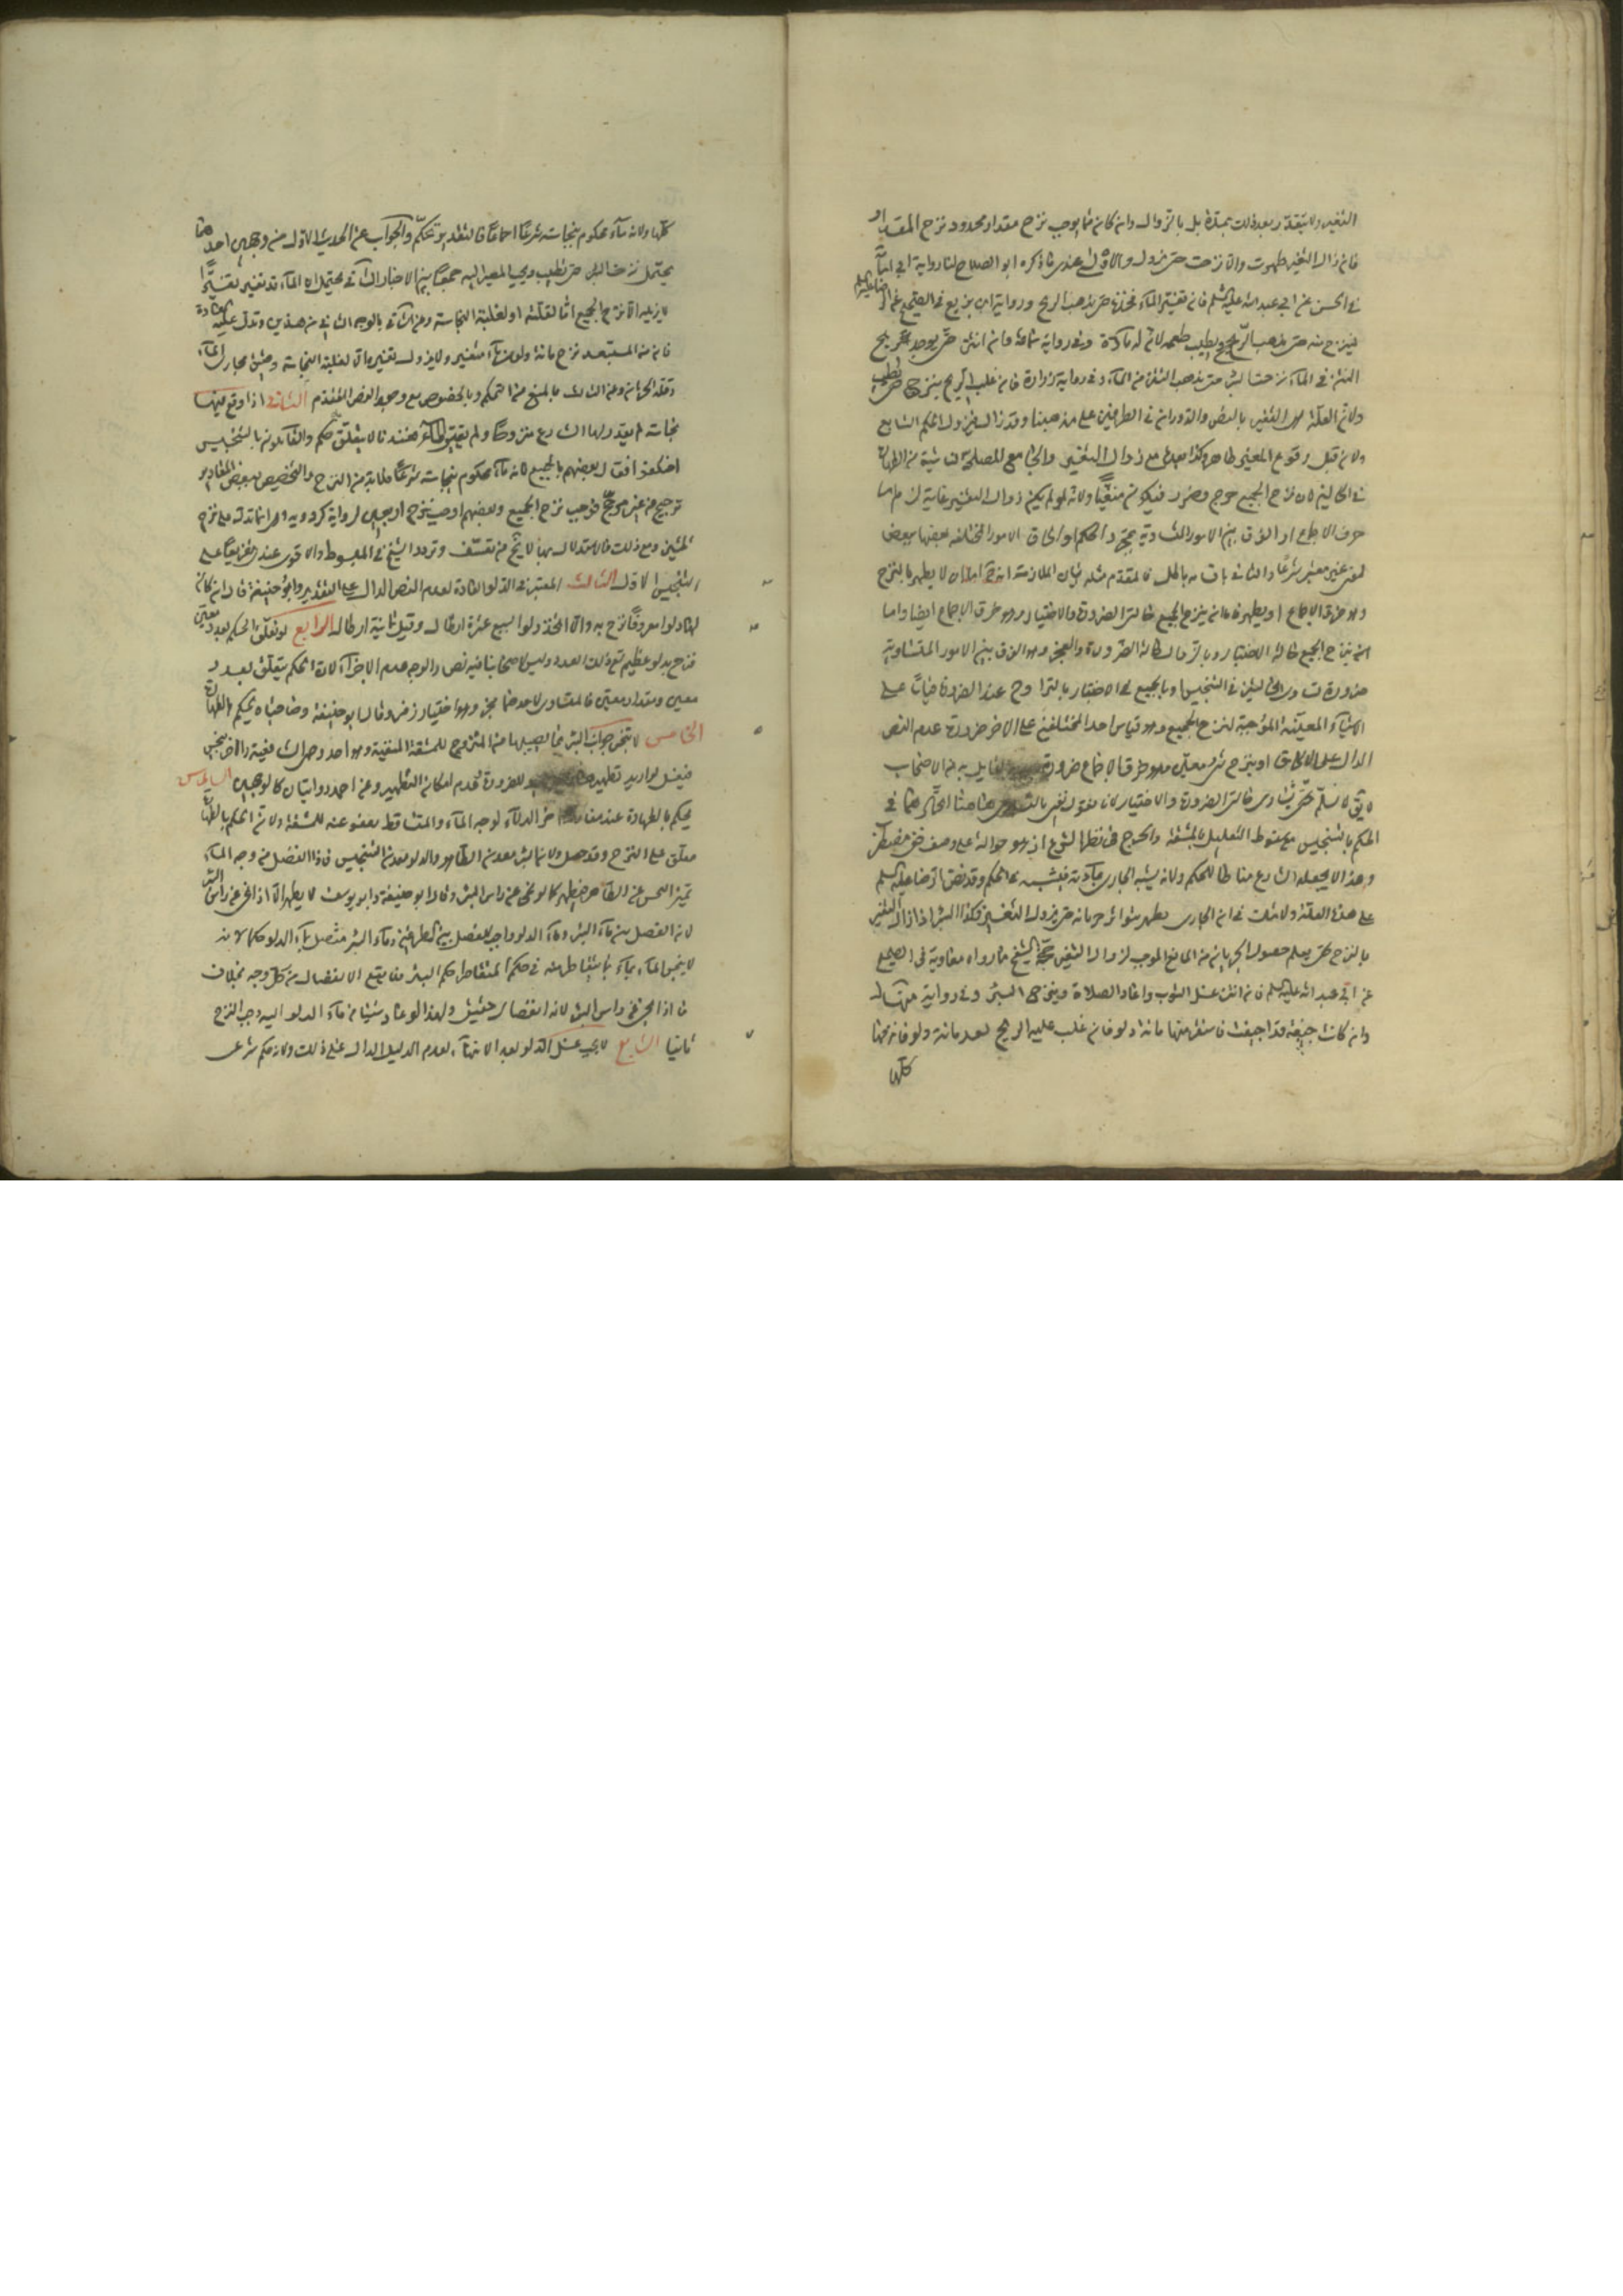 التغير ولا يتقدر بعد ذلك بمدة بل بالزوال وان كان مما يوجب نزح مقدار محدود نزح المقدار
فان زال التغير طهرت والا نزحت حتى يزول والاولى عندي ما ذكره ابو الصلاح لنا رواية ابي اسامة
في الحسن عن ابي عبد الله عليه السلم فان تغير الماء فخذه حتى يذهب الريح ورواية ابن بزيع في الصحيح عن الرضا عليه السلم
فينزح منه حتى يذهب الريح ويطيب طعمه لان له مادة وفي رواية سماعة وان انتن حتى يوجد ريح
النتن في الماء نزحت البئر حتى يذهب النتن من الماء وفي رواية زرارة فان غلب الريح نزحت حتى تطيب
ولان العلة هي التغير بالنص والدوران في الطرفين على مذهبنا وقد زال فيزول الحكم التابع
ولان قبل وقوع المغير طاهر فكذا بعده مع زوال التغير والجامع المصلحة الناشية من الطهارة
في الحالين لان نزح الجميع حرج وضرر فيكون منفيا ولانه لو لم يكن زوال التغير غاية لزم اما
خرق الاجماع او الفرق بين الامور المتساوية بمجرد الحكم او الحاق الامور المختلفة بعضها ببعض
لمعنى غير معتبر شرعا والتالي باقسامه باطل فالمقدم مثله بيان الملازمة انه اما ان لا يطهر بالنزح
وهو خرق الاجماع او يطهر فاما ان ينزح الجميع حالتي الضرورة والاختيار وهو خرق الاجماع ايضا واما
انه ينزح الجميع حالة الاختيار وبالزوال حالة الضرورة والعجز وهو الفرق بين الامور المتساوية
ضرورة تساوي الحالتين في التنجيس او بالجميع في الاختيار بالتراوح عند الضرورة قياسا على
الاشياء المعينة الموجبة لنزح الجميع وهو قياس احد المختلفين على الاخر ضرورة عدم النص
الدال على الالحاق او بنزح شيء معين وهو خرق الاجماع ضرورة لا قايل به من الاصحاب
لا يق لا نسلم تساوي حالتي الضرورة والاختيار لانا نقول نعني بالتساوي هاهنا اتحادهما في
الحكم بالتنجيس مع سقوط التعليل بالمشقة والحرج في نظر الشرع اذ هو حوالة على وصف خفي مضطرب
وهذا لا يجعله الشارع مناطا للحكم ولانه يشبه الجاري بمادته فيشبهه في الحكم وقد نص الرضا عليه السلم
على هذه العلة ولا شك في ان الجاري يطهر بتواتر جريانه حتى يزول التغير فكذا البئر اذا زال التغير
بالنزح حتى يعلم حصول الجريان من النابع الموجب لزوال التغير حجة الشيخ ما رواه معاوية في الصحيح
عن ابي عبد الله عليه السلم فان انتن غسل الثوب واعاد الصلاة ونزحت البئر وفي رواية منهال
وان كانت جيفة قد اجيفت فاستق منها مائة دلو فان غلب عليه الريح بعد مائة دلو فانزحها
كلها
كلها ولانه ماء محكوم بنجاسته شرعا اجماعا فالتقدير تحكم والجواب عن الحديث الاول من وجهين احدهما
يحتمل نزحت البئر حتى تطيب ويجب المصير اليه جمعا بين الاخبار الثاني يحتمل ان الماء قد تغير تغيرا
لا يزيله الا نزح الجميع اما لقلته او لغلبة النجاسة وعن الثاني بالوجه الثاني من هذين وتدل عليه العادة
فان من المستبعد نزح مائة دلو من ماء متغير ولا يزول تغيره الا لغلبة النجاسة وضيق مجاري الماء
وقلة الجريان وعن الثالث بالمنع من التحكم وبالخصوص مع وجود النص المتقدم الثاني اذا وقع فيها
نجاسة لم يقدر لها الشارع منزوحا ولم يتغير الماء فعندنا لا يتعلق حكم والقائلون بالتنجيس
اختلفوا فقال بعضهم بالجميع لانه ماء محكوم بنجاسته شرعا فلابد من النزح والتخصيص ببعض المقادير
ترجيح من غير مرجح فوجب نزح الجميع وبعضهم اوجب نزح اربعين لرواية كردويه وهي انما تدل على نزح
ثلثين ومع ذلك فالاستدلال بها لا يخ من تعسف وتردد الشيخ في المبسوط والاقوى عندي تفريعا على
التنجيس الاول الثالث المعتبر في الدلو العادة لعدم النص الدال على التقدير وابو حنيفة قال ان كان
لها دلو معروف نزح به والا اتخذ دلوا يسع عشرة ارطال وقيل ثمانية ارطال الرابع لو تعلق الحكم بعدد معين
فنزح بدلو عظيم تسع ذلك العدد وليس لاصحابنا فيه نص والوجه عدم الاجزاء لان الحكم يتعلق بعدد
معين ومقدار معين فالمتساوي لاحدهما مجز وهو اختيار زفر وقال ابو حنيفة وصاحباه يحكم بالطهارة
الخامس لا ينجس جوانب البئر مما يصيبها من المنزوح للمشقة المنفية وهو احد وجهي الشافعية والاخر ينجس
فيغسل لو اريد تطهيرها وليس بجيد للضرورة وعدم امكان التطهير وعن احمد روايتان كالوجهين السادس
يحكم بالطهارة عند مفارقة اخر الدلاء لوجه الماء والمتساقط معفو عنه للمشقة ولان الحكم بالطهارة
معلق على النزح وقد حصل ولان البئر معدن الطاهر والدلو معدن التنجيس فاذا انفصل من وجه الماء
تميز النجس عن الطاهر فيطهر كما لو نحي عن راس البئر وقال ابو حنيفة وابو يوسف لا يطهر الا اذا نحي عن راس البئر
لان الفصل بين ماء البئر وماء الدلو واجب للفصل بين الطرفين وماء البئر متصل بماء الدلو حكما لانه
لا ينجس الماء بماء باستقاط منه في حكم المتقاطر حكم البئر فما يتبع الانفصال من كل وجه بخلاف
ما اذا نحي عن راس البئر لانه انفصال حقيقي ولهذا لو عاد شيئا من ماء الدلو اليه وجب النزح
ثانيا السابع لا يجب غسل الدلو بعد الانتهاء لعدم الدليل الدال على ذلك ولانه حكم شرعي